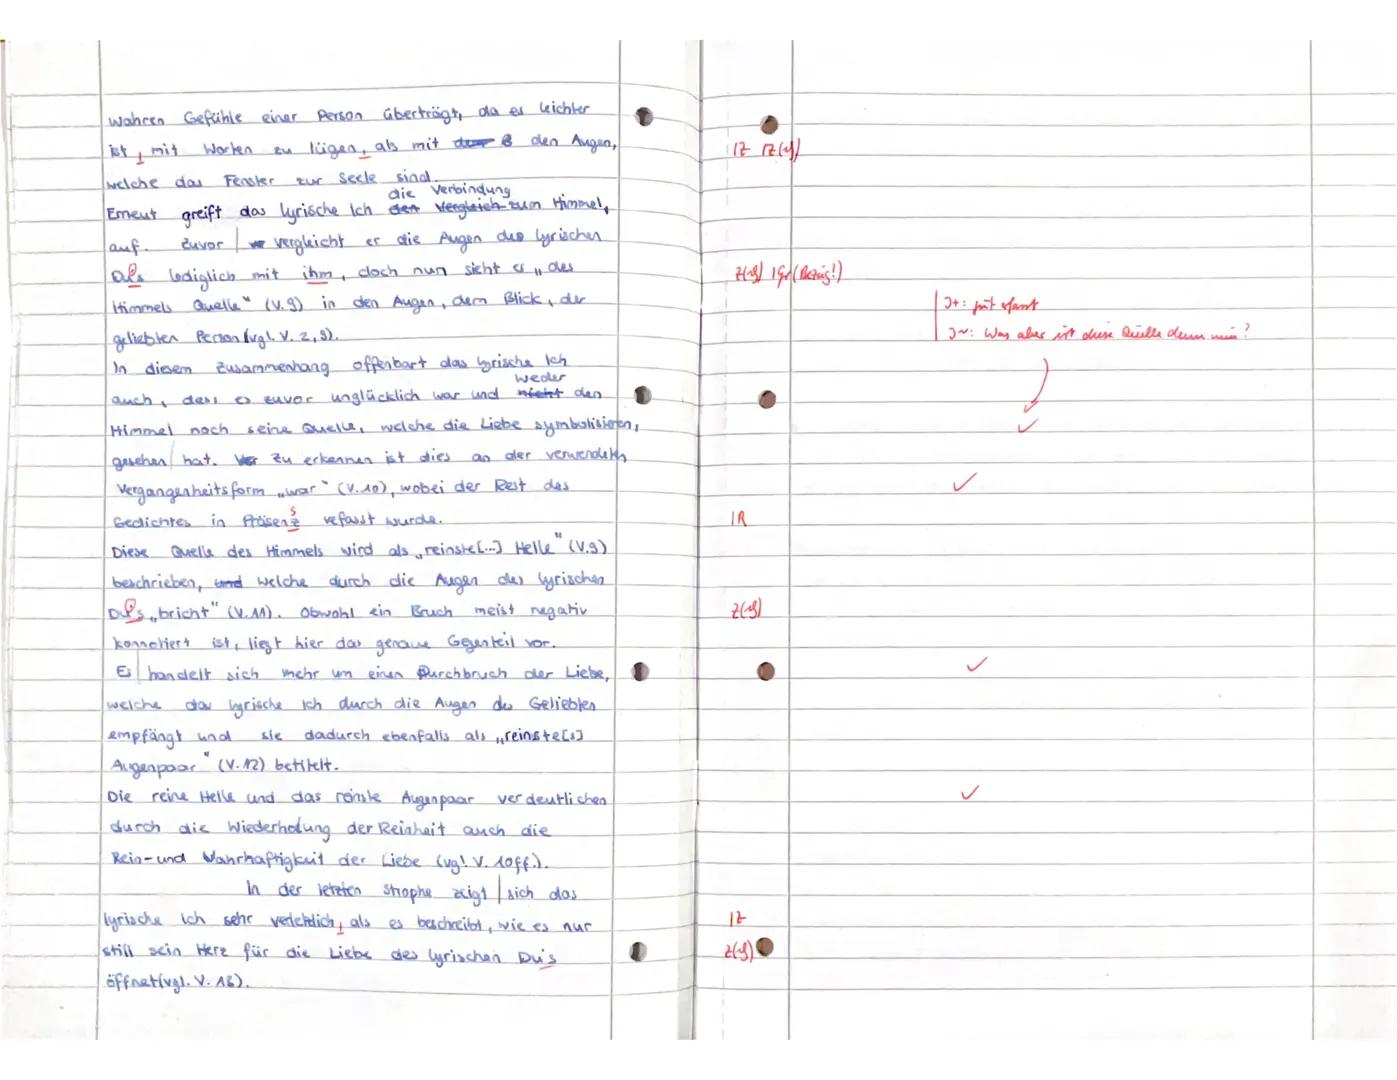 wahren Gefühle einer Person überträgt, da es leichter
ist, mit Worten zu lügen, als mit den Augen,
welche das Fenster zur Seele sind.
die Verbindung
Erneut greift das lyrische Ich den Vergleich zum Himmel,
auf. Zuvor vergleicht er die Augen des lyrischen
Du's lediglich mit ihm, doch nun sieht es „des
Himmels Quelle" (V.9) in den Augen, dem Blick, der
geliebten Person (vgl. V. 2, 9).
In diesem Zusammenhang offenbart das lyrische Ich
weder
auch, dass es zuvor unglücklich war und nicht den
Himmel noch seine Quelle, welche die Liebe symbolisieren,
gesehen hat. Zu erkennen ist dies an der verwendeten
Vergangenheitsform „war" (V.10), wobei der Rest des
s
Gedichtes in Präsenz vefasst wurde.
Diese Quelle des Himmels wird als „reinste[...] Helle" (V.9)
beschrieben, und welche durch die Augen des lyrischen
Du's „bricht" (V.11). Obwohl ein Bruch meist negativ
konnotiert ist, liegt hier das genaue Gegenteil vor.
Es handelt sich mehr um einen Durchbruch der Liebe,
welche das lyrische Ich durch die Augen des Geliebten
empfängt und sie dadurch ebenfalls als „reinste[s]
Augenpaar" (V.12) betitelt.
Die reine Helle und das reinste Augenpaar verdeutlichen
durch die Wiederholung der Reinheit auch die
Rein- und Wahrhaftigkeit der Liebe (vgl. V. 10ff.).
In der letzten Strophe zeigt sich das
lyrische Ich sehr verletzlich, als es beschreibt, wie es nur
still sein Herz für die Liebe des lyrischen Du's
öffnet (vgl. V. 13).
IZ IZ
Gr (Bezug!)
J+: gut erfasst
J~: Was aber ist diese Quelle denn nun?
IR
IZ